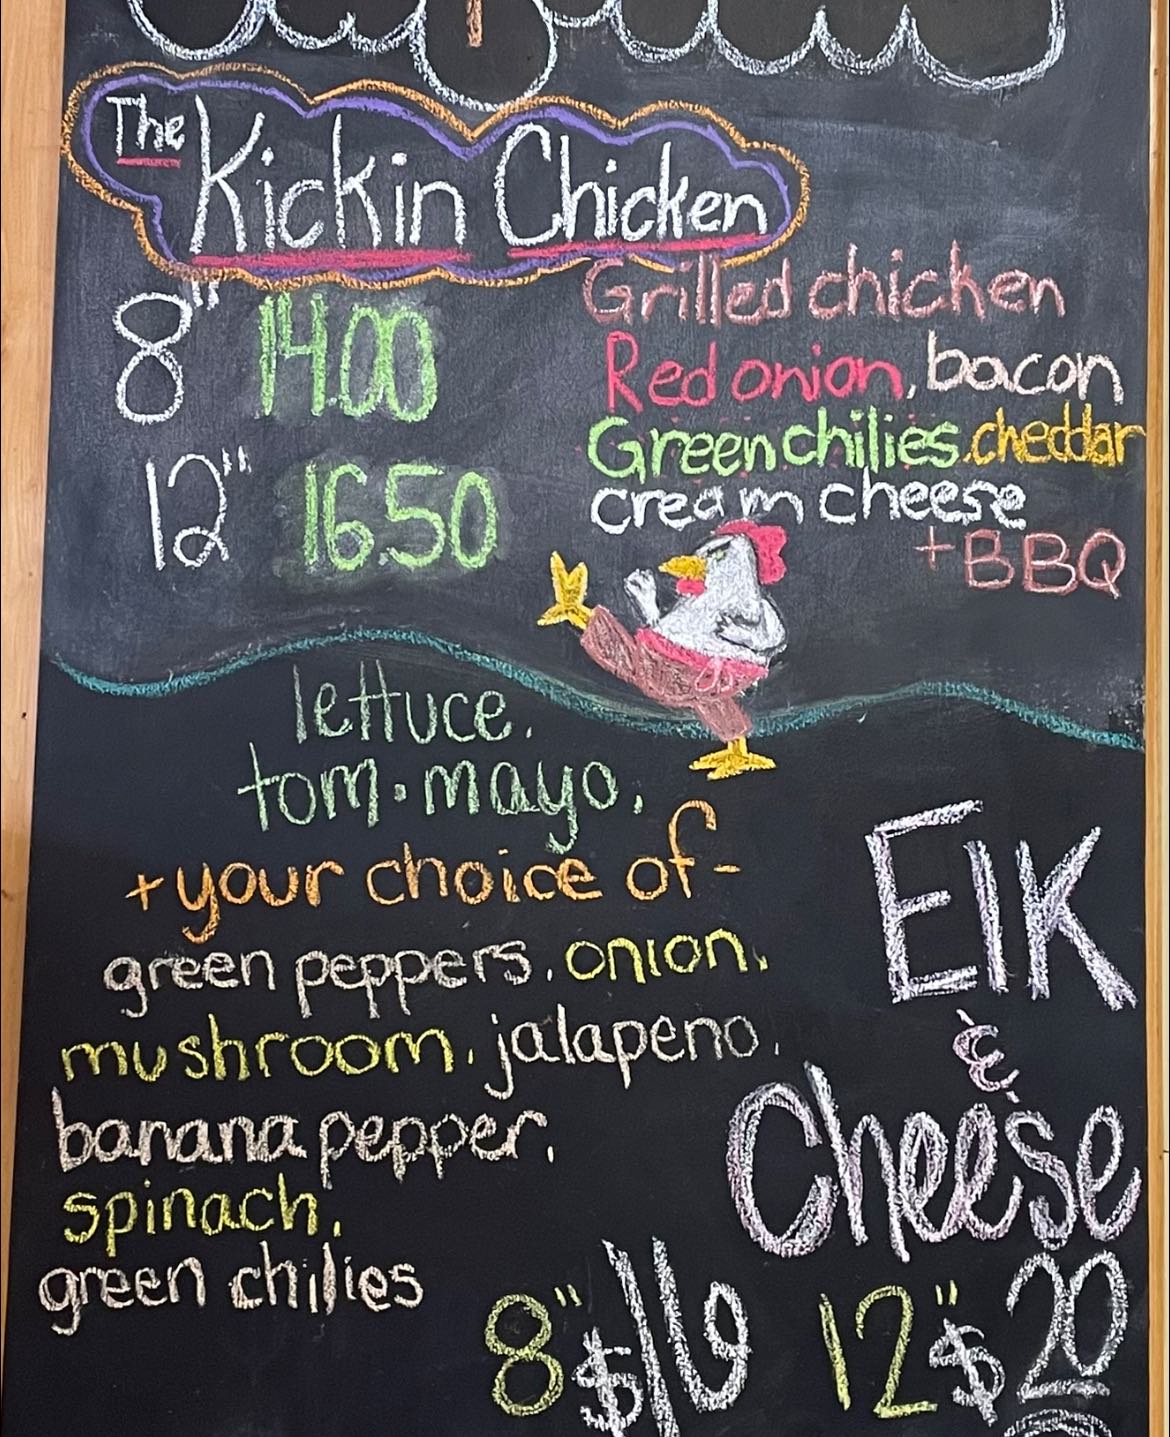 The
Kickin Chicken
8" 14.00
12" 16.50
Grilled chicken
Red onion, bacon
Green chilies, cheddar
cream cheese
+BBQ
lettuce.
tom. mayo.
+your choice of-
green peppers, onion,
mushroom, jalapeno,
banana pepper,
spinach,
green chilies
Elk
&
Cheese
8" $16 12" $20